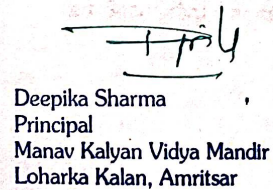 Deepika Sharma
Principal
Manav Kalyan Vidya Mandir
Loharka Kalan, Amritsar